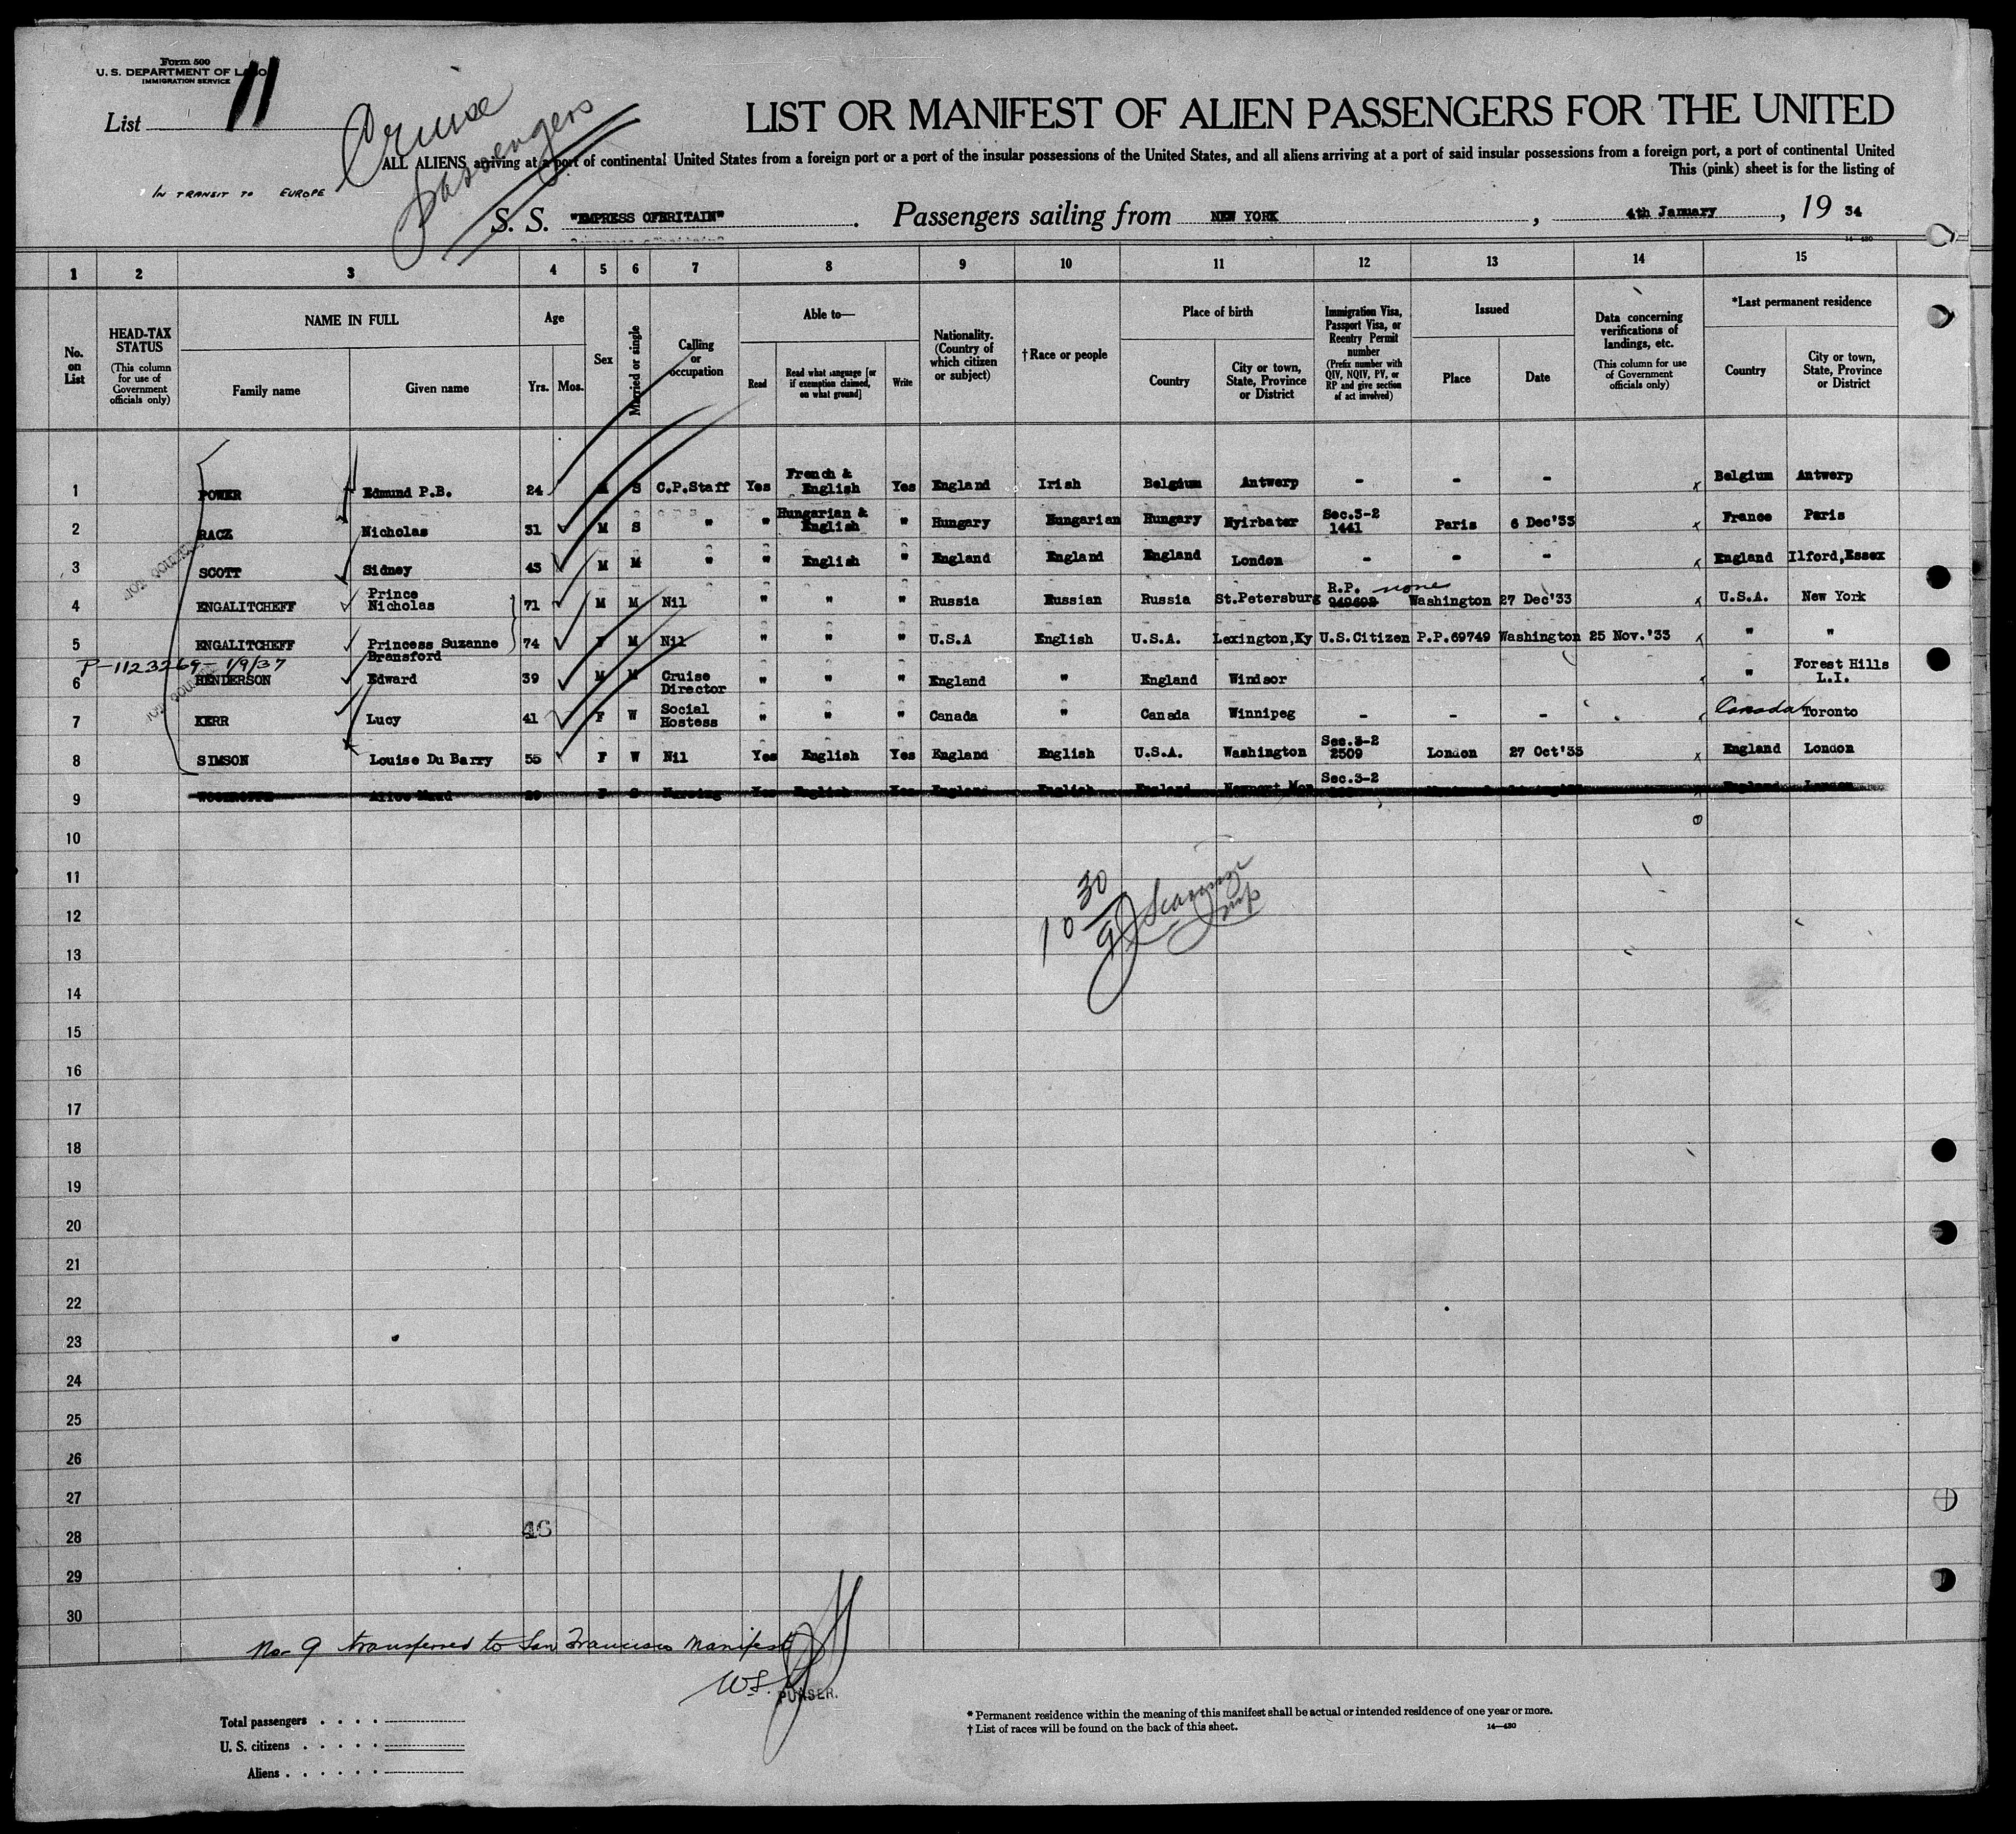 Form 500
U. S. DEPARTMENT OF LABO
IMMIGRATION SERVICE
List 11
Cruise
passengers
LIST OR MANIFEST OF ALIEN PASSENGERS FOR THE UNITED
ALL ALIENS arriving at a port of continental United States from a foreign port or a port of the insular possessions of the United States, and all aliens arriving at a port of said insular possessions from a foreign port, a port of continental United
This (pink) sheet is for the listing of
IN TRANSIT TO EUROPE
S. S. "EMPRESS OFBRITAIN". Passengers sailing from NEW YORK, 4th January, 19 34
14—430
1 2 3 4 5 6 7 8 9 10 11 12 13 14 15
No. on List
HEAD-TAX STATUS (This column for use of Government officials only)
NAME IN FULL
Family name Given name
Age
Yrs. Mos.
Sex
Married or single
Calling or occupation
Able to—
Read Read what language [or if exemption claimed, on what ground] Write
Nationality. (Country of which citizen or subject)
†Race or people
Place of birth
Country City or town, State, Province or District
Immigration Visa, Passport Visa, or Reentry Permit number (Prefix number with QIV, NQIV, PV, or RP and give section of act involved)
Issued
Place Date
Data concerning verifications of landings, etc. (This column for use of Government officials only)
*Last permanent residence
Country City or town, State, Province or District
1 POWER Edmund P.B. 24 M S C.P.Staff Yes French & English Yes England Irish Belgium Antwerp - - - x Belgium Antwerp
2 RACZ Nicholas 31 M S " " Hungarian & English " Hungary Hungarian Hungary Nyirbator Sec.3-2 1441 Paris 6 Dec'33 x France Paris
3 SCOTT Sidney 43 M M " " English " England England England London - - - x England Ilford,Essex
4 ENGALITCHEFF Prince Nicholas 71 M M Nil " " " Russia Russian Russia St.Petersburg R.P. none Washington 27 Dec'33 x U.S.A. New York
5 ENGALITCHEFF Princess Suzanne Bransford 74 F M Nil " " " U.S.A English U.S.A. Lexington,Ky U.S.Citizen P.P.69749 Washington 25 Nov.'33 x " "
P-1123269- 1/9/37
6 HENDERSON Edward 39 M M Cruise Director " " " England " England Windsor " Forest Hills L.I.
7 KERR Lucy 41 F W Social Hostess " " " Canada " Canada Winnipeg - - - Canada Toronto
8 SIMSON Louise Du Barry 55 F W Nil Yes English Yes England English U.S.A. Washington Sec.3-2 2509 London 27 Oct'33 x England London
9 Alice Maud F S Nursing Yes English Yes England English England Newport Mon Sec.3-2 England London
10
11
12
13
14
15
16
17
18
19
20
21
22
23
24
25
26
27
28
29
30
10 30/9
46
No 9 transferred to San Francisco Manifest
PURSER.
Total passengers
U. S. citizens
Aliens
* Permanent residence within the meaning of this manifest shall be actual or intended residence of one year or more.
† List of races will be found on the back of this sheet.
14—430